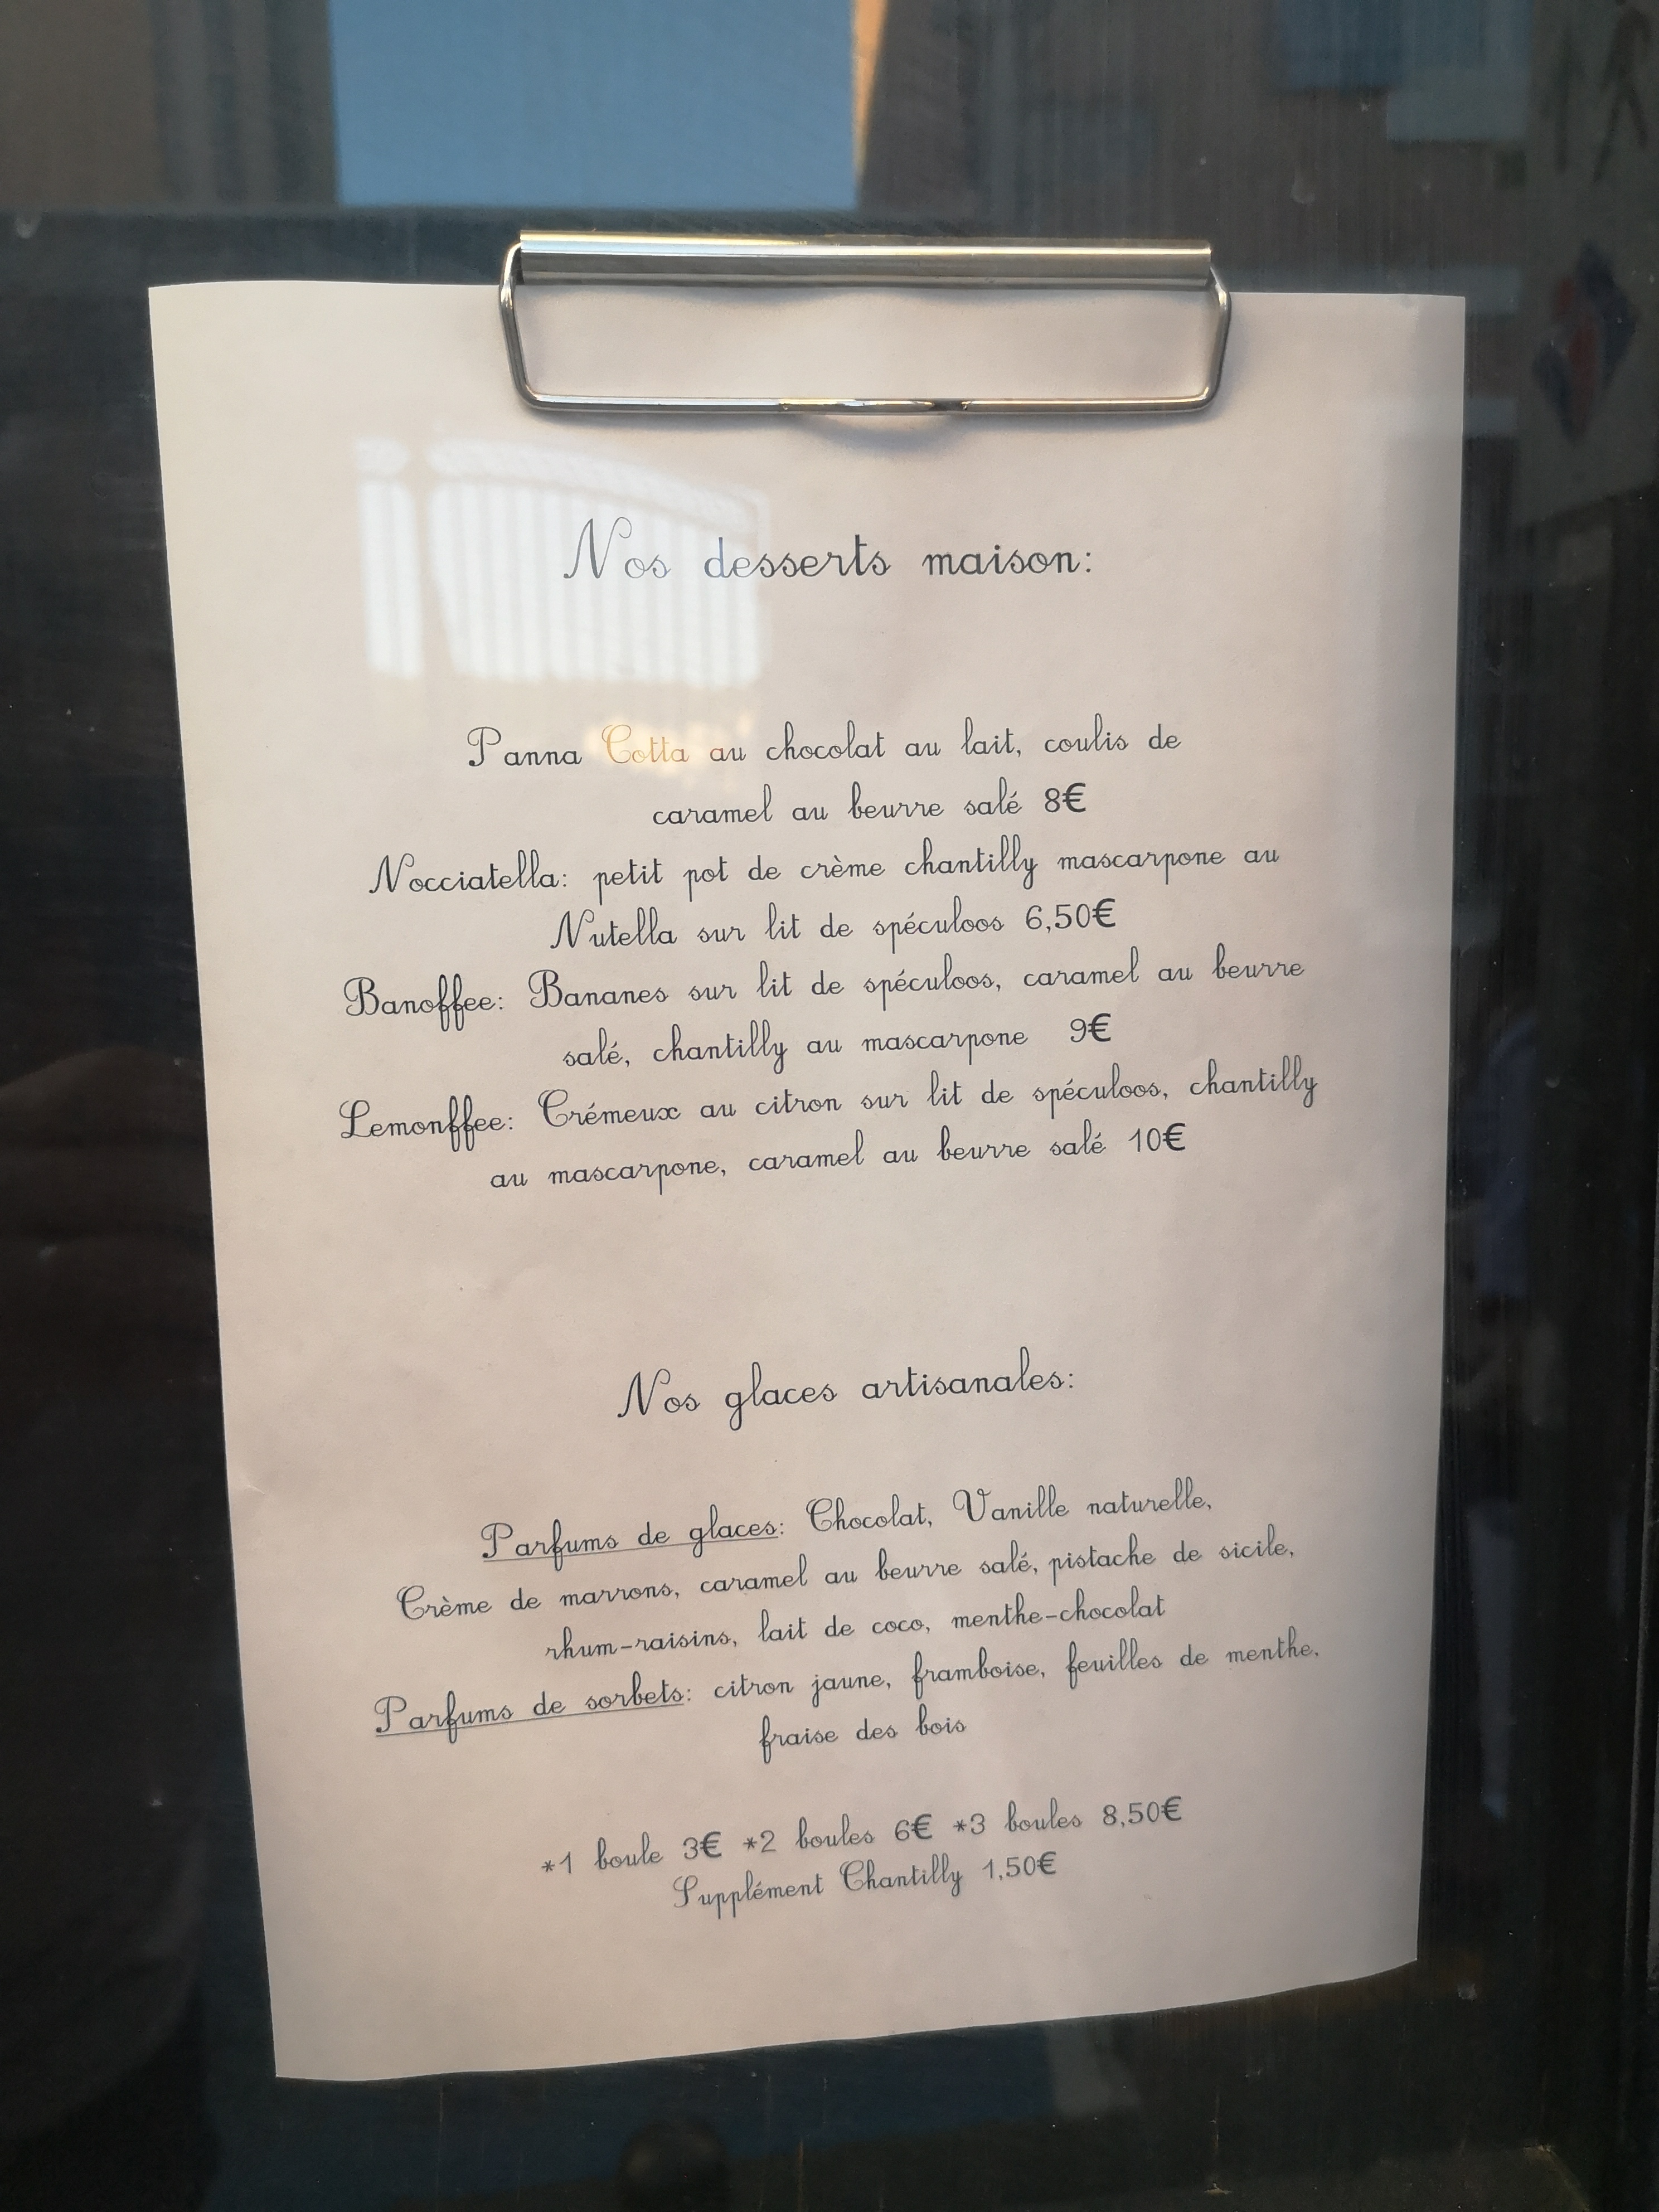 Nos desserts maison:
Panna Cotta au chocolat au lait, coulis de
caramel au beurre salé 8€
Nocciatella: petit pot de crème chantilly mascarpone au
Nutella sur lit de spéculoos 6,50€
Banoffee: Bananes sur lit de spéculoos, caramel au beurre
salé, chantilly au mascarpone 9€
Lemonffee: Crémeux au citron sur lit de spéculoos, chantilly
au mascarpone, caramel au beurre salé 10€
Nos glaces artisanales:
Parfums de glaces: Chocolat, Vanille naturelle,
Crème de marrons, caramel au beurre salé, pistache de sicile,
rhum-raisins, lait de coco, menthe-chocolat
Parfums de sorbets: citron jaune, framboise, feuilles de menthe,
fraise des bois
*1 boule 3€ *2 boules 6€ *3 boules 8,50€
Supplément Chantilly 1,50€